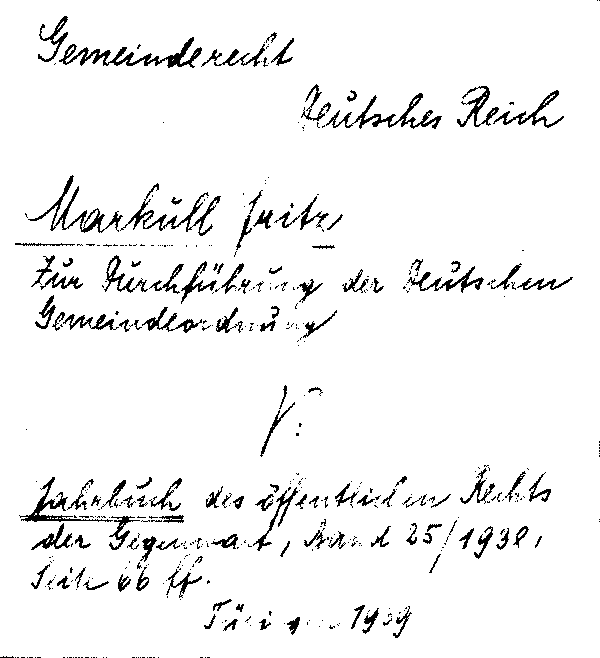 Gemeinderecht
Deutsches Reich
Markull Fritz
Zur Durchführung der Deutschen
Gemeindeordnung
V:
Jahrbuch des öffentlichen Rechts
der Gegenwart, Band 25/1938,
Seite 66 ff.
Tübingen 1939